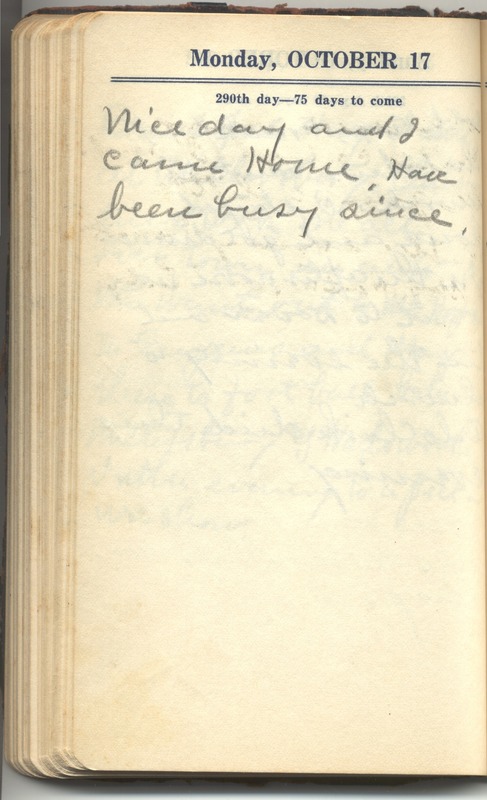 Monday, OCTOBER 17
290th day—75 days to come
Nice day and I
came Home, Have
been busy since.